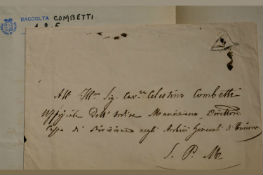 RACCOLTA COMBETTI
All' Ill.mo Sig. Cav.re Celestino Combetti
Uffiziale Dell' Ordine Mauriziano, Direttore
Capo di Divisione negli Archivi Generali di Torino
S. P. M.